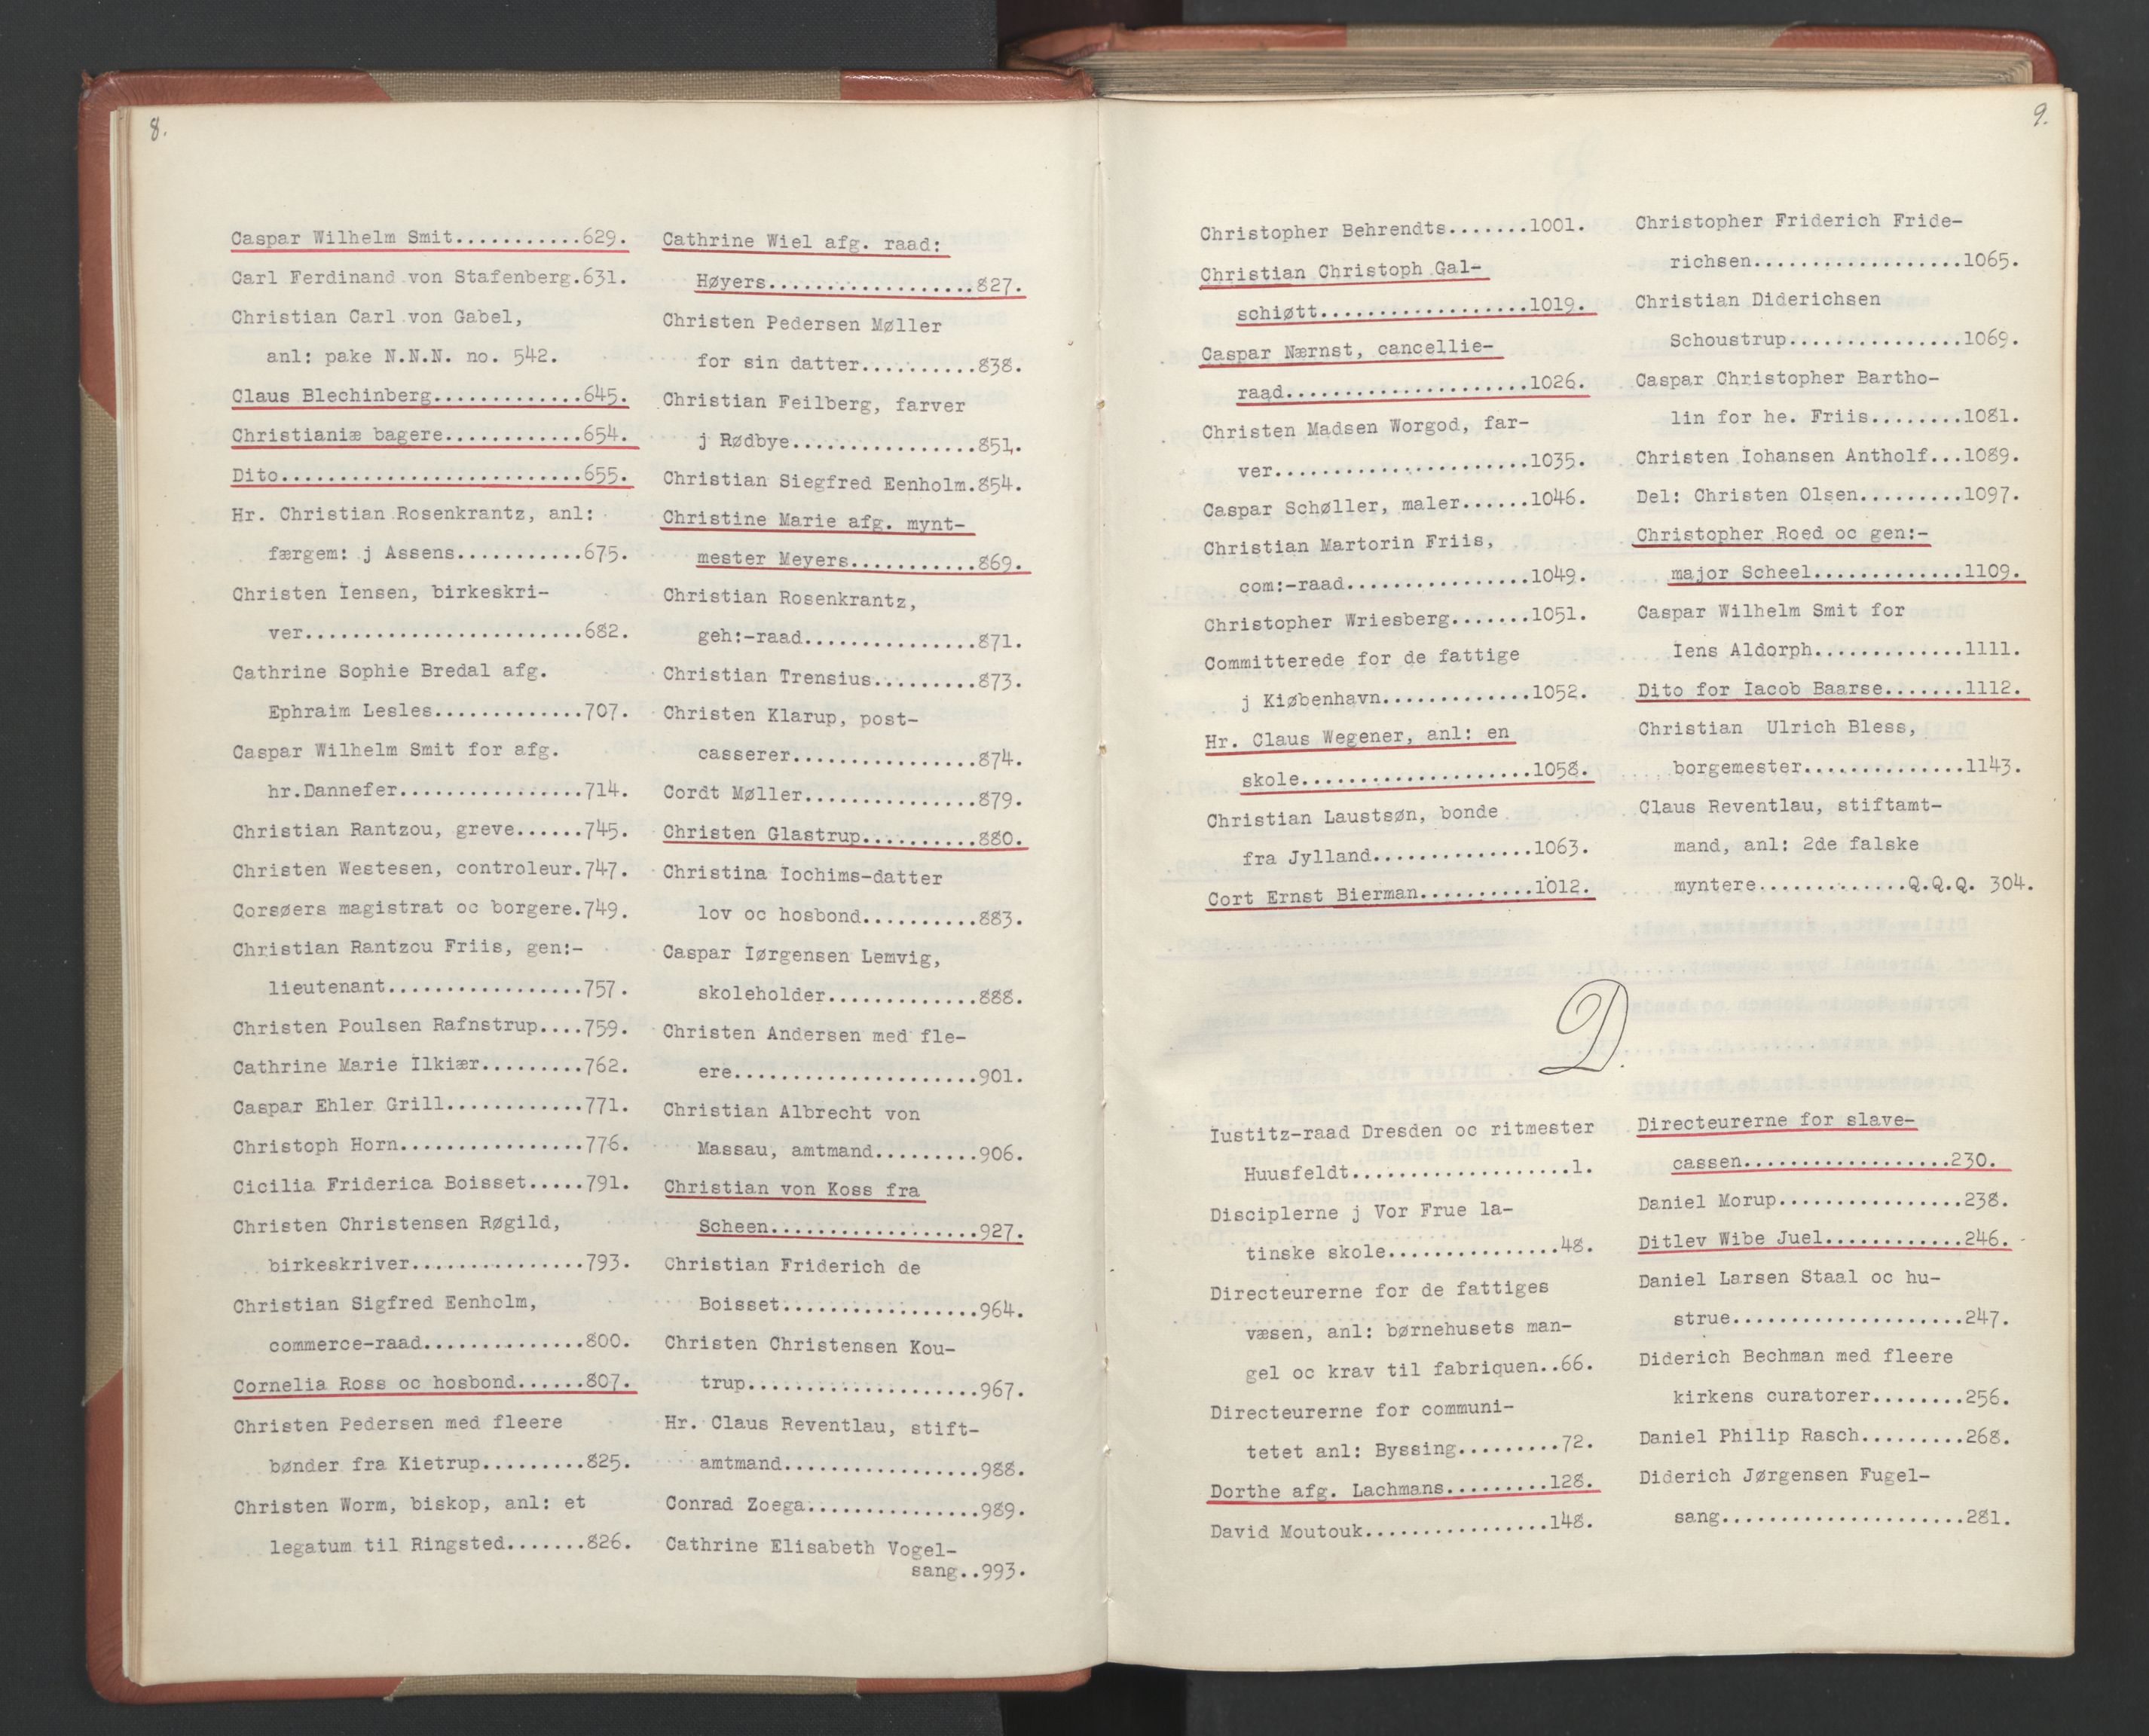 8.
Caspar Wilhelm Smit...........629.
Carl Ferdinand von Stafenberg.631.
Christian Carl von Gabel,
anl: pake N.N.N. no. 542.
Claus Blechinberg.............645.
Christianiæ bagere............654.
Dito..........................655.
Hr. Christian Rosenkrantz, anl:
færgem: j Assens...........675.
Christen Iensen, birkeskri-
ver........................682.
Cathrine Sophie Bredal afg.
Ephraim Lesles.............707.
Caspar Wilhelm Smit for afg.
hr.Dannefer................714.
Christian Rantzou, greve......745.
Christen Westesen, controleur.747.
Corsøers magistrat oc borgere.749.
Christian Rantzou Friis, gen:-
lieutenant.................757.
Christen Poulsen Rafnstrup....759.
Cathrine Marie Ilkiær.........762.
Caspar Ehler Grill............771.
Christoph Horn................776.
Cicilia Friderica Boisset.....791.
Christen Christensen Røgild,
birkeskriver...............793.
Christian Sigfred Eenholm,
commerce-raad..............800.
Cornelia Ross oc hosbond......807.
Christen Pedersen med fleere
bønder fra Kietrup.........825.
Christen Worm, biskop, anl: et
legatum til Ringsted.......826.
Cathrine Wiel afg. raad:
Høyers..................827.
Christen Pedersen Møller
for sin datter..........838.
Christian Feilberg, farver
j Rødbye................851.
Christian Siegfred Eenholm.854.
Christine Marie afg. mynt-
mester Meyers...........869.
Christian Rosenkrantz,
geh:-raad...............871.
Christian Trensius.........873.
Christen Klarup, post-
casserer................874.
Cordt Møller...............879.
Christen Glastrup..........880.
Christina Iochims-datter
lov oc hosbond..........883.
Caspar Iørgensen Lemvig,
skoleholder.............888.
Christen Andersen med fle-
ere.....................901.
Christian Albrecht von
Massau, amtmand.........906.
Christian von Koss fra
Scheen..................927.
Christian Friderich de
Boisset.................964.
Christen Christensen Kou-
trup....................967.
Hr. Claus Reventlau, stift-
amtmand.................988.
Conrad Zoega...............989.
Cathrine Elisabeth Vogel-
sang..993.
9.
Christopher Behrendts.......1001.
Christian Christoph Gal-
schiøtt..................1019.
Caspar Nærnst, cancellie-
raad.....................1026.
Christen Madsen Worgod, far-
ver......................1035.
Caspar Schøller, maler......1046.
Christian Martorin Friis,
com:-raad................1049.
Christopher Wriesberg.......1051.
Committerede for de fattige
j Kiøbenhavn.............1052.
Hr. Claus Wegener, anl: en
skole....................1058.
Christian Laustsøn, bonde
fra Jylland..............1063.
Cort Ernst Bierman..........1012.
Christopher Friderich Fride-
richsen..................1065.
Christian Diderichsen
Schoustrup...............1069.
Caspar Christopher Bartho-
lin for he. Friis........1081.
Christen Iohansen Antholf...1089.
Del: Christen Olsen.........1097.
Christopher Roed oc gen:-
major Scheel.............1109.
Caspar Wilhelm Smit for
Iens Aldorph.............1111.
Dito for Iacob Baarse.......1112.
Christian Ulrich Bless,
borgemester..............1143.
Claus Reventlau, stiftamt-
mand, anl: 2de falske
myntere.............Q.Q.Q. 304.
D.
Iustitz-raad Dresden oc ritmester
Huusfeldt...................1.
Disciplerne j Vor Frue la-
tinske skole...............48.
Directeurerne for de fattiges
væsen, anl: børnehusets man-
gel oc krav til fabriquen..66.
Directeurerne for communi-
tetet anl: Byssing.........72.
Dorthe afg. Lachmans.........128.
David Moutouk................148.
Directeurerne for slave-
cassen..................230.
Daniel Morup................238.
Ditlev Wibe Juel............246.
Daniel Larsen Staal oc hu-
strue....................247.
Diderich Bechman med fleere
kirkens curatorer........256.
Daniel Philip Rasch.........268.
Diderich Jørgensen Fugel-
sang.....................281.